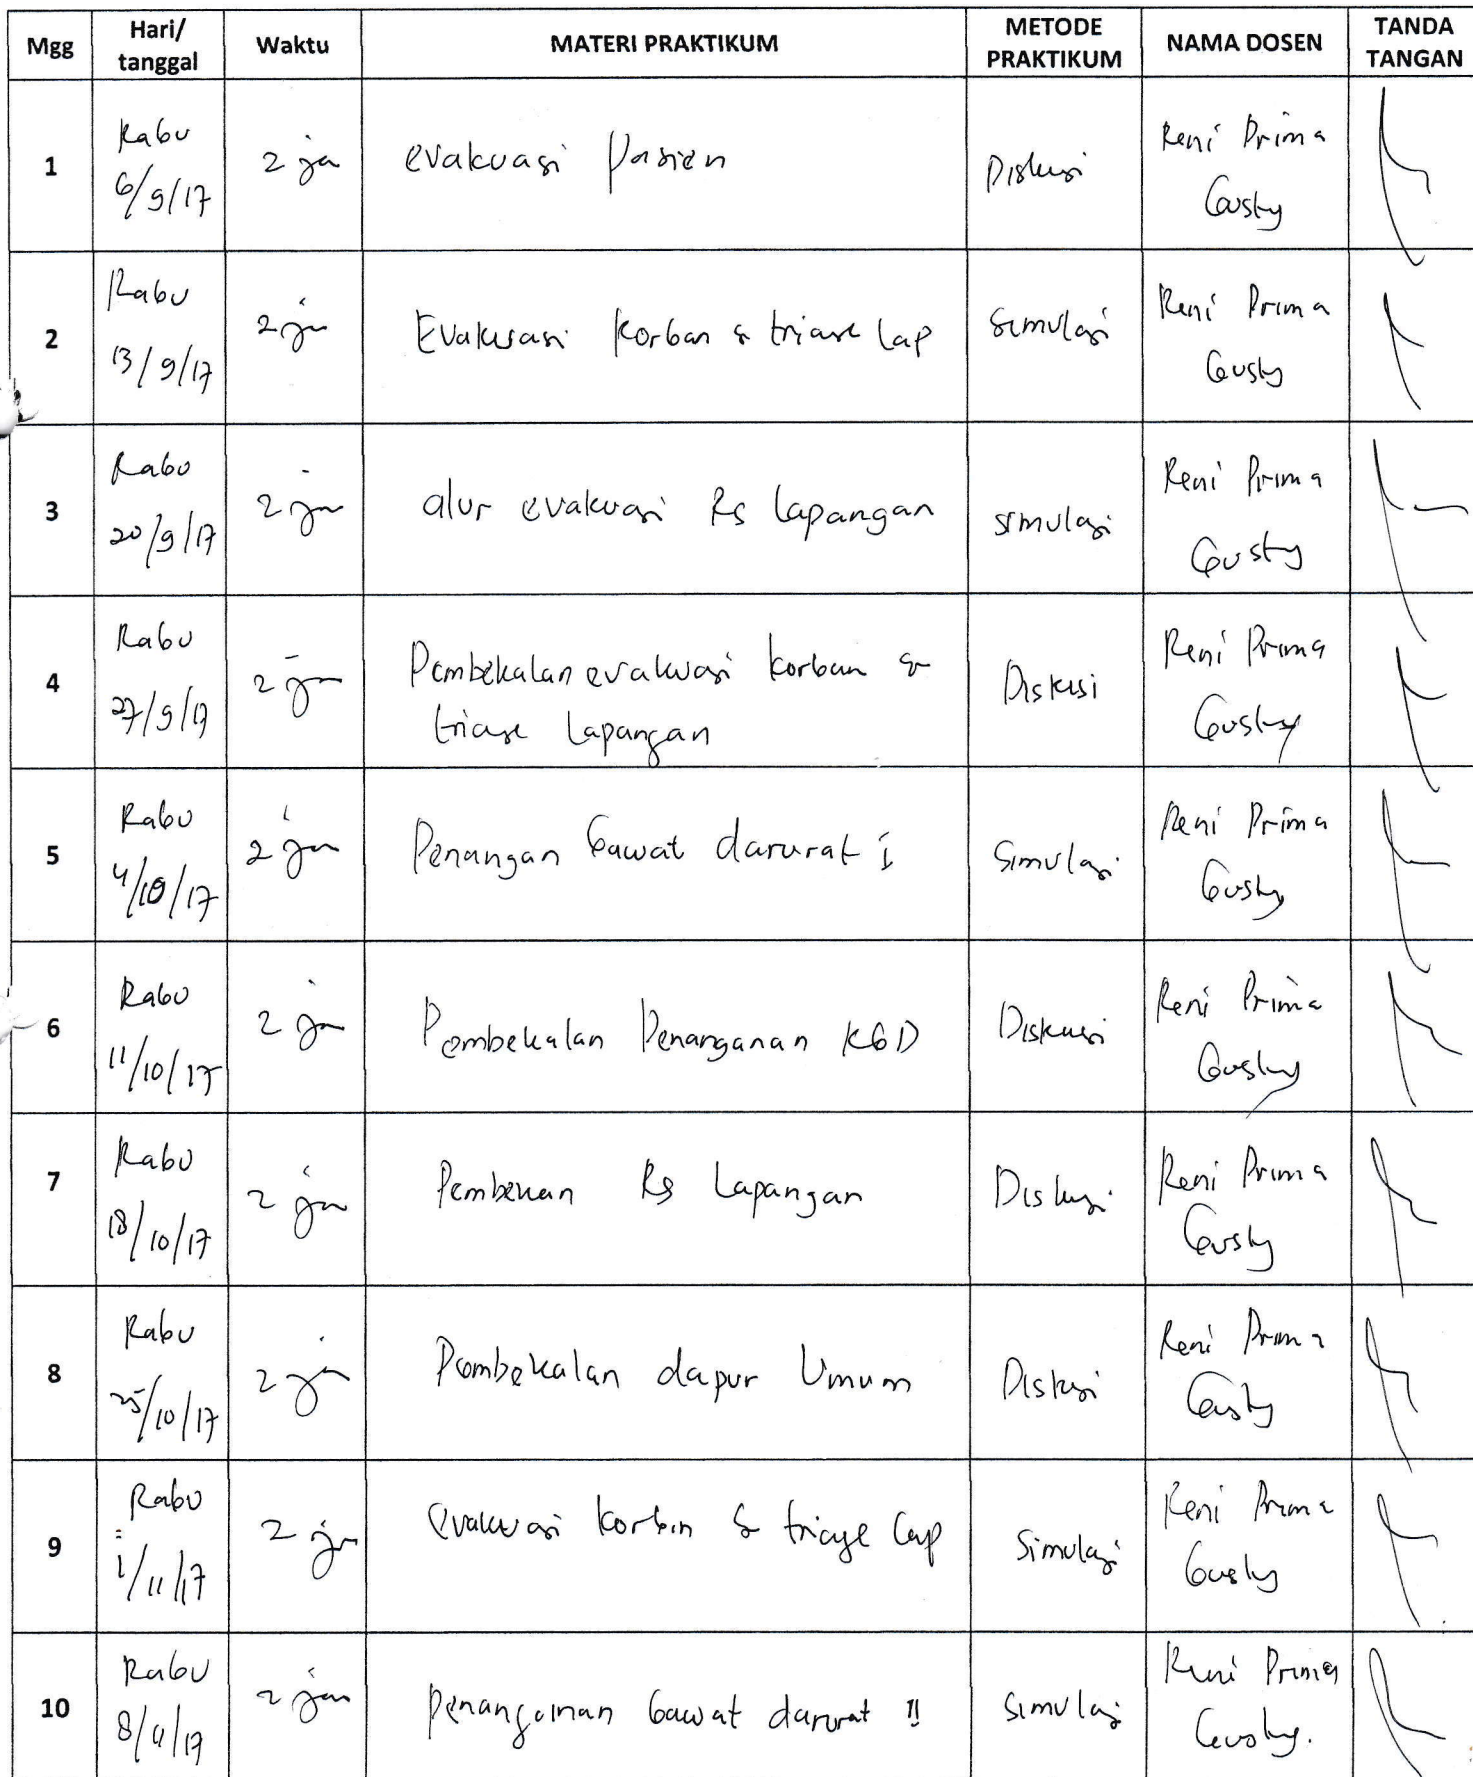 Mgg Hari/ tanggal Waktu MATERI PRAKTIKUM METODE PRAKTIKUM NAMA DOSEN TANDA TANGAN
1 Rabu 6/9/17 2 ja evakuasi Pasien Diskusi Reni Prima Gusty
2 Rabu 13/9/17 2 jam Evakuasi Korban & triase Lap Simulasi Reni Prima Gusty
3 Rabu 20/9/17 2 jam alur evakuasi Rs Lapangan simulasi Reni Prima Gusty
4 Rabu 27/9/17 2 jam Pembekalan evakuasi korban &
triase Lapangan Diskusi Reni Prima Gusty
5 Rabu 4/10/17 2 jam Penangan Gawat darurat I Simulasi Reni Prima Gusty
6 Rabu 11/10/17 2 jam Pembekalan Penanganan KGD Diskusi Reni Prima Gusty
7 Rabu 18/10/17 2 jam Rs Lapangan Diskusi Reni Prima Gusty
8 Rabu 25/10/17 2 jam Pembekalan dapur Umum Diskusi Reni Prima Gusty
9 Rabu 1/11/17 2 jam evakuasi korban & triage Lap Simulasi Reni Prima Gusty
10 Rabu 8/11/17 2 jam Gawat darurat II Simulasi Reni Prima Gusty.